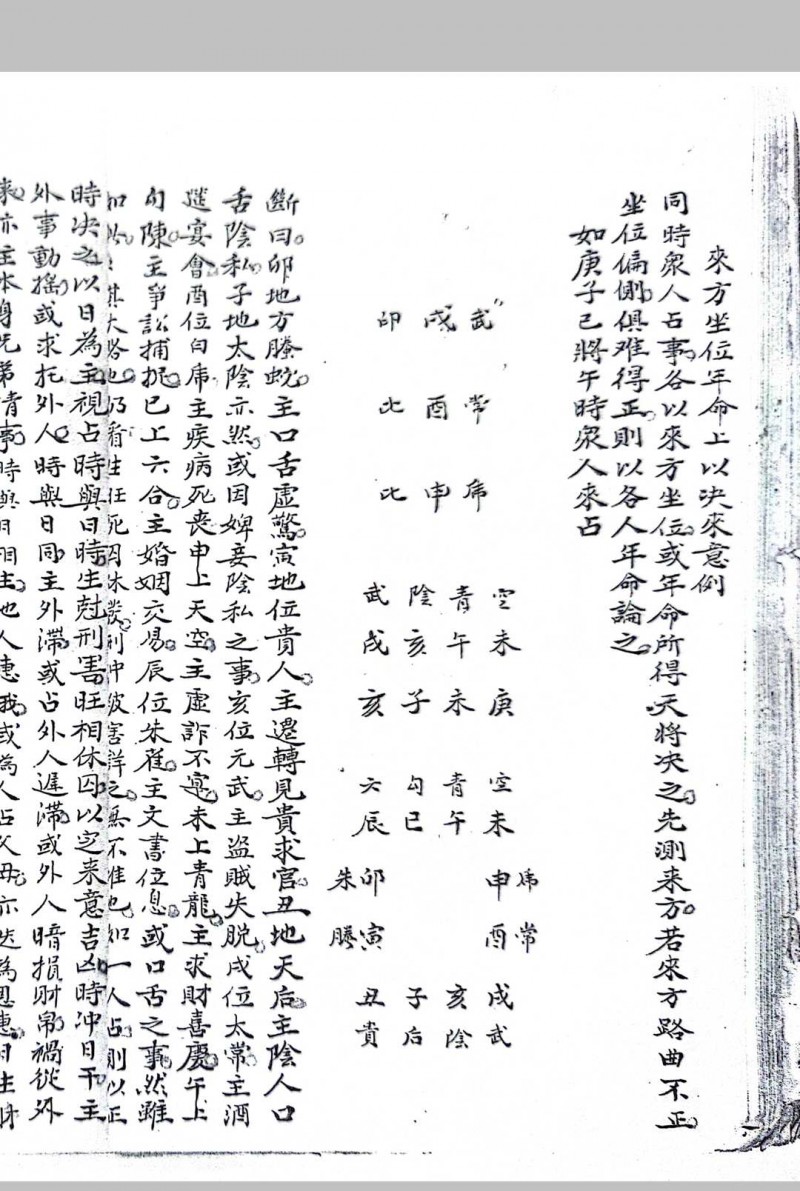 來方坐位年命上以決來意例
同時衆人占事各以來方坐位或年命所得天將決之先測來方若來方路曲不正
坐位偏側俱难得正則以各人年命論之
如庚子巳將午時衆人來占
武戌印
常酉比
乕申比
空青陰武
未午亥戌
庚未子亥
空青勾六
未午巳辰
乕申卯朱
常酉寅螣
戌亥子丑
武陰后貴
斷曰卯地方螣蛇主口舌虛驚寅地位貴人主遷轉見貴求官丑地天后主陰人口
舌陰私子地太陰亦然或因婢妾陰私之事亥位元武主盜賊失脫戌位太常主酒
筵宴會酉位白乕主疾病死丧申上天空主虛詐不寔未上青龍主求財喜慶午上
勾陳主爭訟捕捉巳上六合主婚姻交易辰位朱雀主文書位息或口舌之事然雖
如此其大畧也仍看生旺死囚休废刑冲破害詳之無不准也如一人占則以正
時決之以日為主視占時與日時生尅刑害旺相休囚以定来意吉凶時冲日干主
外事動摇或求托外人時與日同主外滞或占外人遲滞或外人暗損財帛禍從外
來亦主本身兄弟情事時與日相生他人惠我或為人占父母亦迭為恩惠日生時